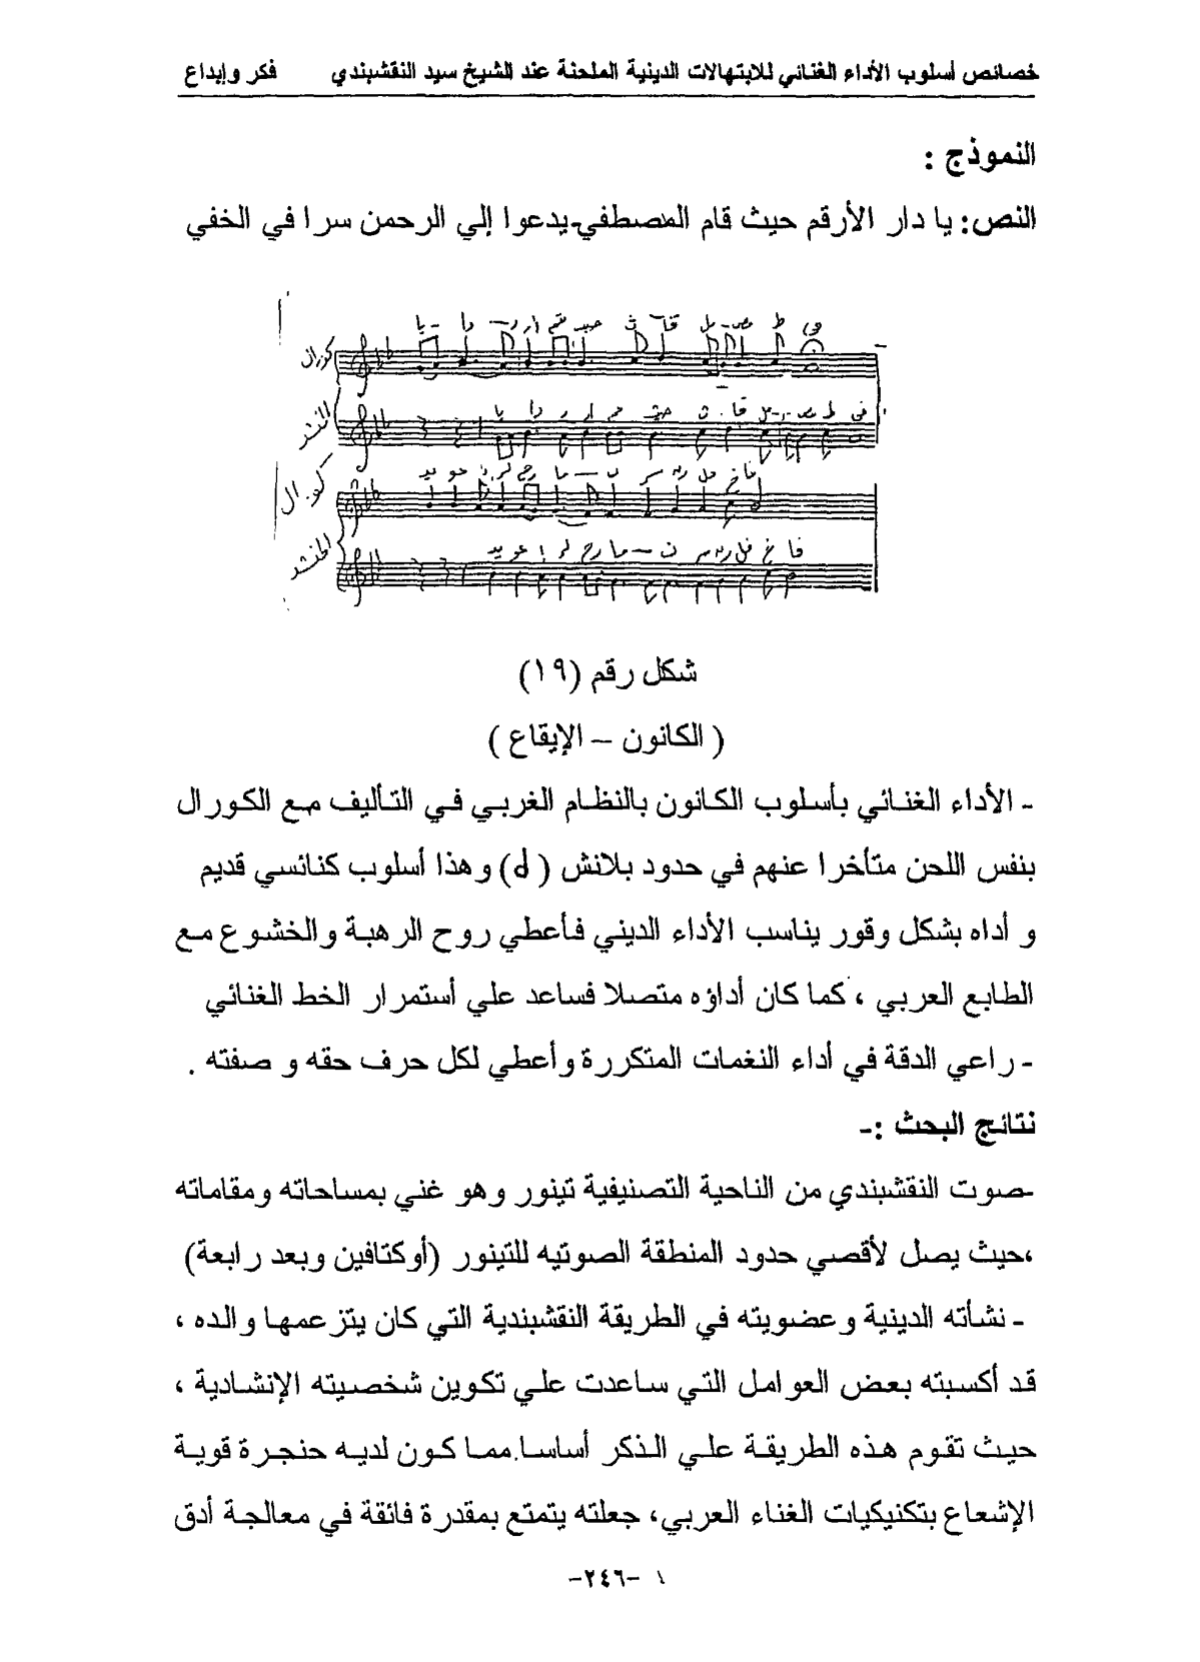 خصائص أسلوب الأداء الغنائي للابتهالات الدينية الملحنة عند الشيخ سيد النقشبندي فكر وإبداع
النموذج :
النص: يا دار الأرقم حيث قام المصطفي-يدعوا إلي الرحمن سرا في الخفي
كورال
المنشد
كورال
المنشد
شكل رقم (١٩)
( الكانون – الإيقاع )
- الأداء الغنائي بأسلوب الكانون بالنظام الغربي في التأليف مع الكورال
بنفس اللحن متأخرا عنهم في حدود بلانش ( ) وهذا أسلوب كنائسي قديم
و أداه بشكل وقور يناسب الأداء الديني فأعطي روح الرهبة والخشوع مع
الطابع العربي ، كما كان أداؤه متصلا فساعد علي أستمرار الخط الغنائي
- راعي الدقة في أداء النغمات المتكررة وأعطي لكل حرف حقه و صفته .
نتائج البحث :-
-صوت النقشبندي من الناحية التصنيفية تينور وهو غني بمساحاته ومقاماته
،حيث يصل لأقصي حدود المنطقة الصوتيه للتينور (أوكتافين وبعد رابعة)
- نشأته الدينية وعضويته في الطريقة النقشبندية التي كان يتزعمها والده ،
قد أكسبته بعض العوامل التي ساعدت علي تكوين شخصيته الإنشادية ،
حيث تقوم هذه الطريقة علي الذكر أساسا.مما كون لديه حنجرة قوية
الإشعاع بتكنيكيات الغناء العربي، جعلته يتمتع بمقدرة فائقة في معالجة أدق
-٢٤٦-